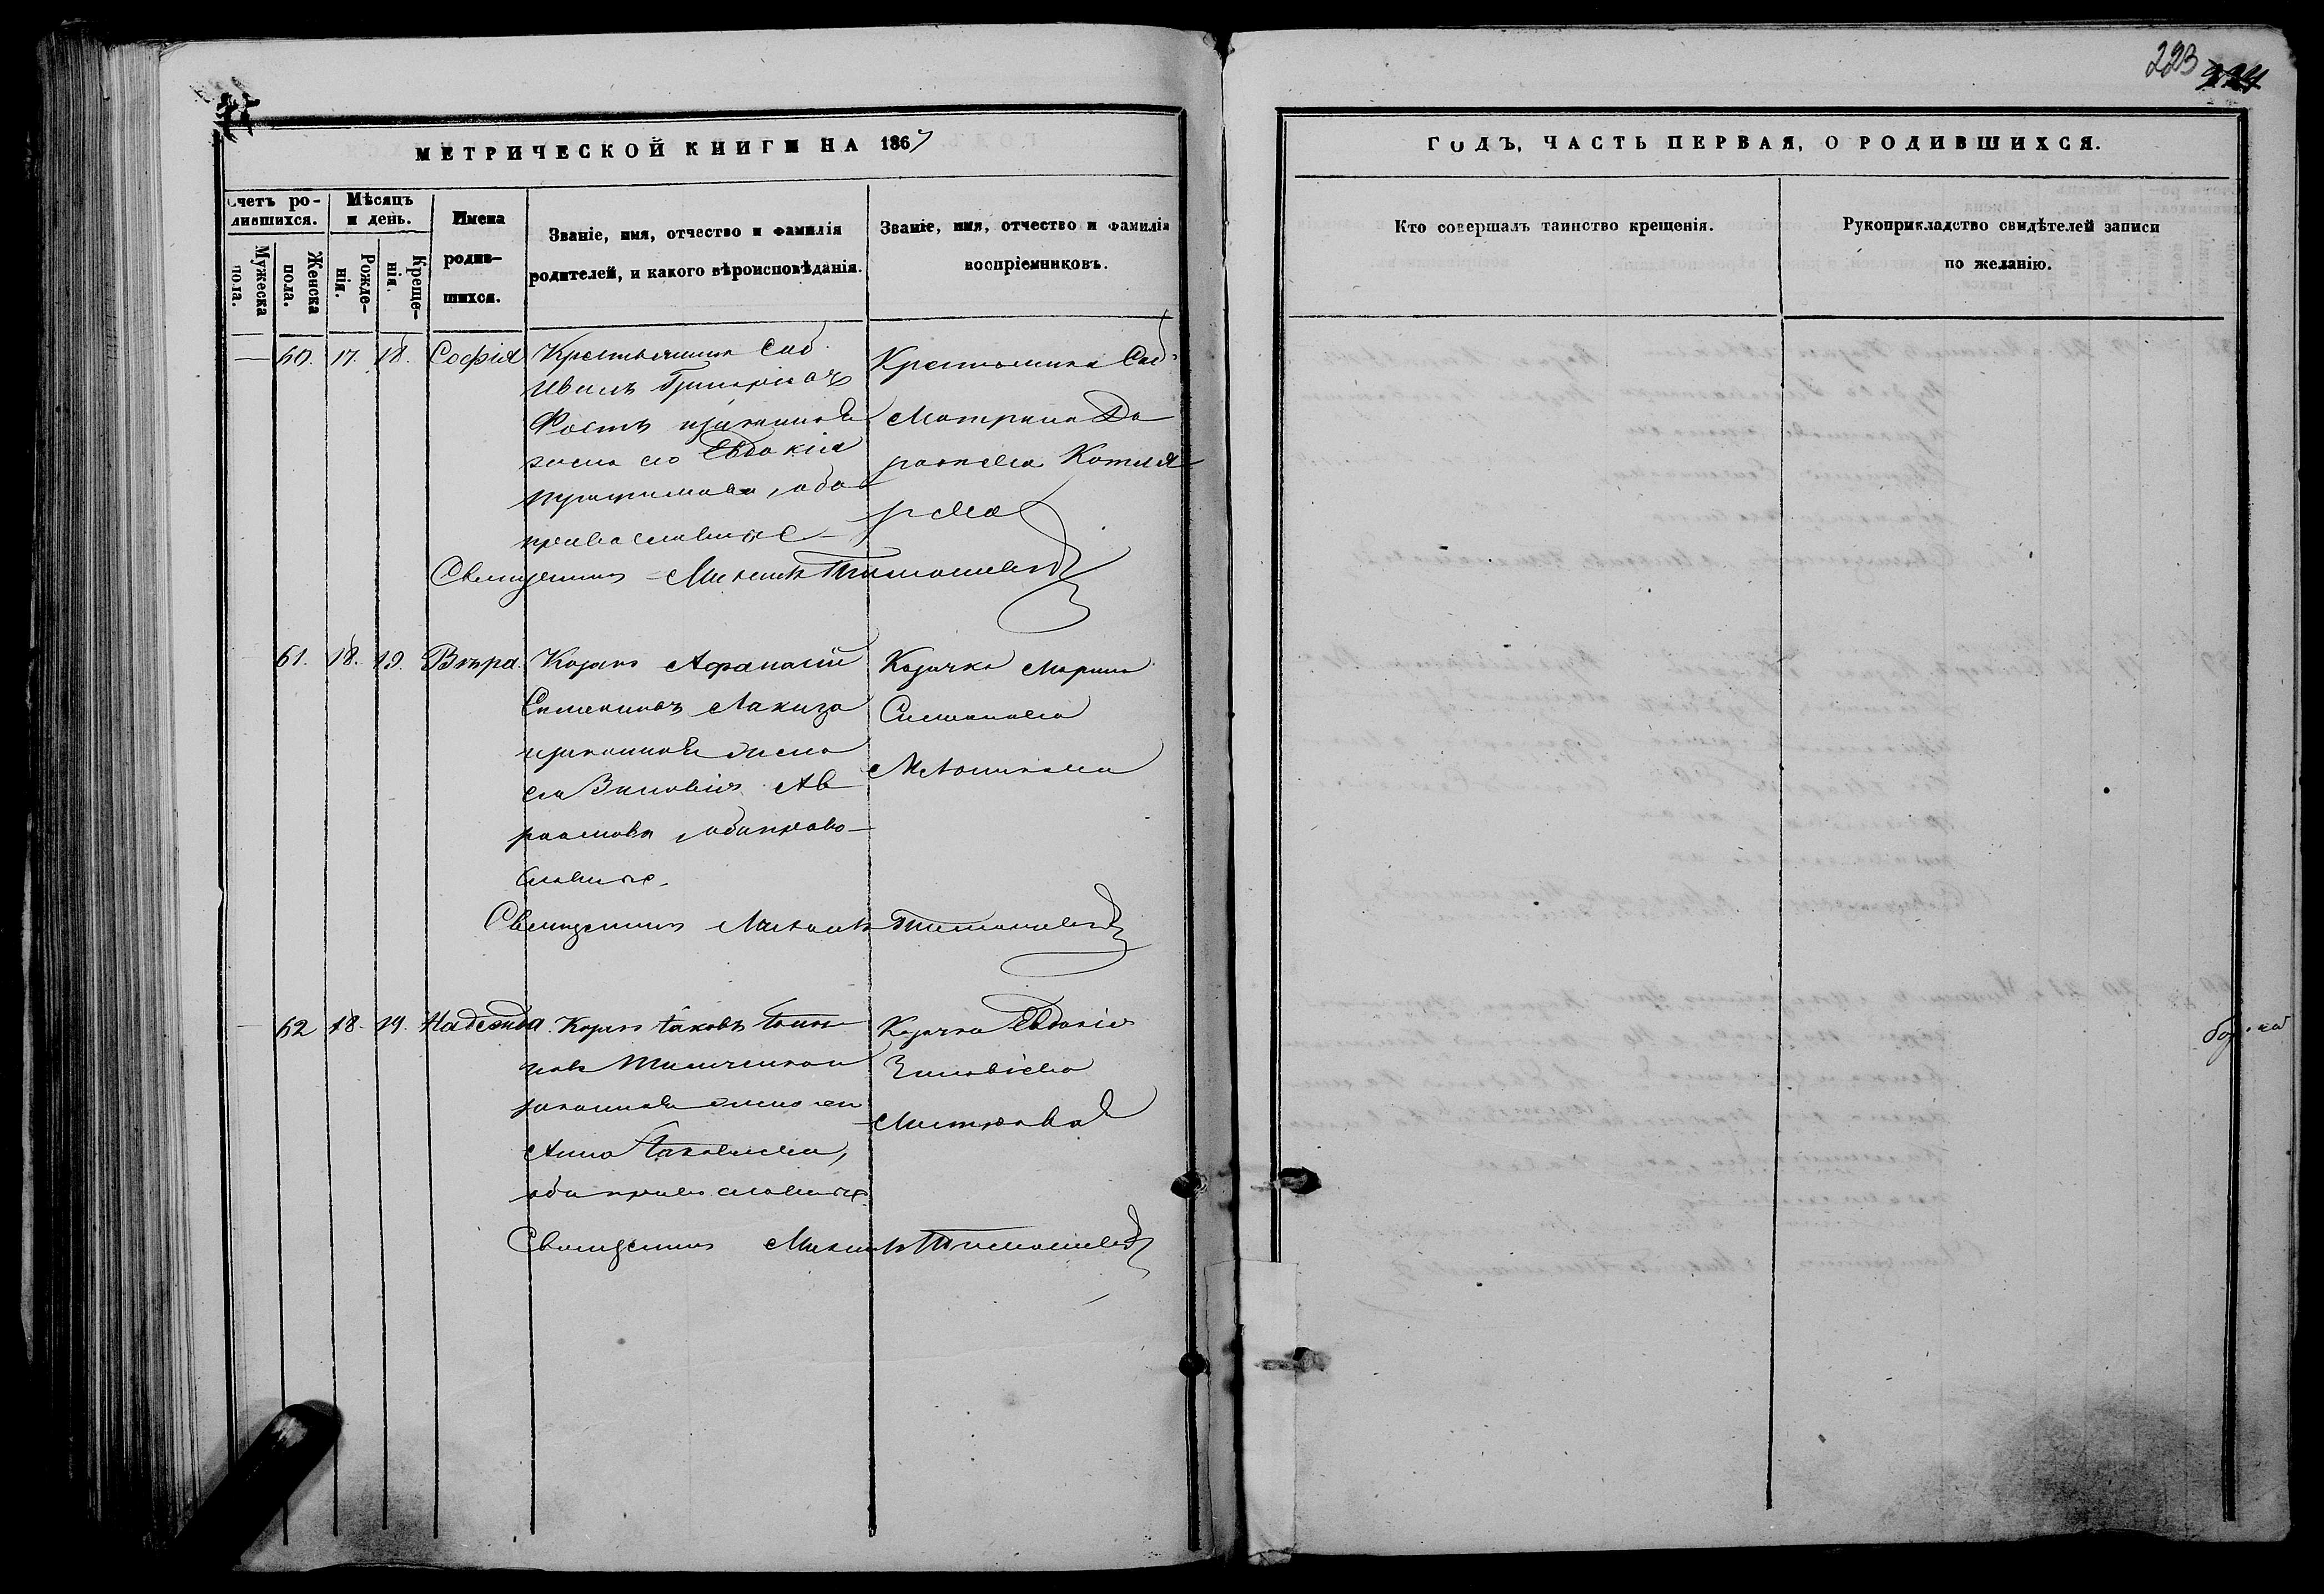 223
МЕТРИЧЕСКОЙ КНИГИ НА 1867
ГОДЪ, ЧАСТЬ ПЕРВАЯ, О РОДИВШИХСЯ.
Счетъ ро-
дившихся.
Мужеска
пола.
Женска
пола.
Мѣсяцъ
и день.
Рожде-
нія.
Креще-
нія.
Имена
родив-
шихся.
Званіе, имя, отчество и фамилія
родителей, и какого вѣроисповѣданія.
Званіе, имя, отчество и фамилія
воспріемниковъ.
Кто совершалъ таинство крещенія.
Рукоприкладство свидѣтелей записи
по желанію.
60. 17. 18. Софія
Крестьянинъ Соб.
Иванъ Григоріевъ
законная
жена его Евдокія
оба
православные
Крестьянка Соб.
Матрона До
рофеева Котля
рова
Священникъ Михаилъ Тимошевскій
61. 18. 19. Вѣра.
Козакъ Афанасій
Симеоновъ Лакиза
законная жена
его Зиновія Ав
раамова, оба право-
славные.
Козачка Марина
Симеонова
Священникъ Михаилъ Тимошевскій
62 18. 19. Надежда.
Козакъ Іаковъ
законная жена его
Анна Іаковлева,
оба православные
Козачка Евдокія
Зиновіева
Священникъ Михаилъ Тимошевскій